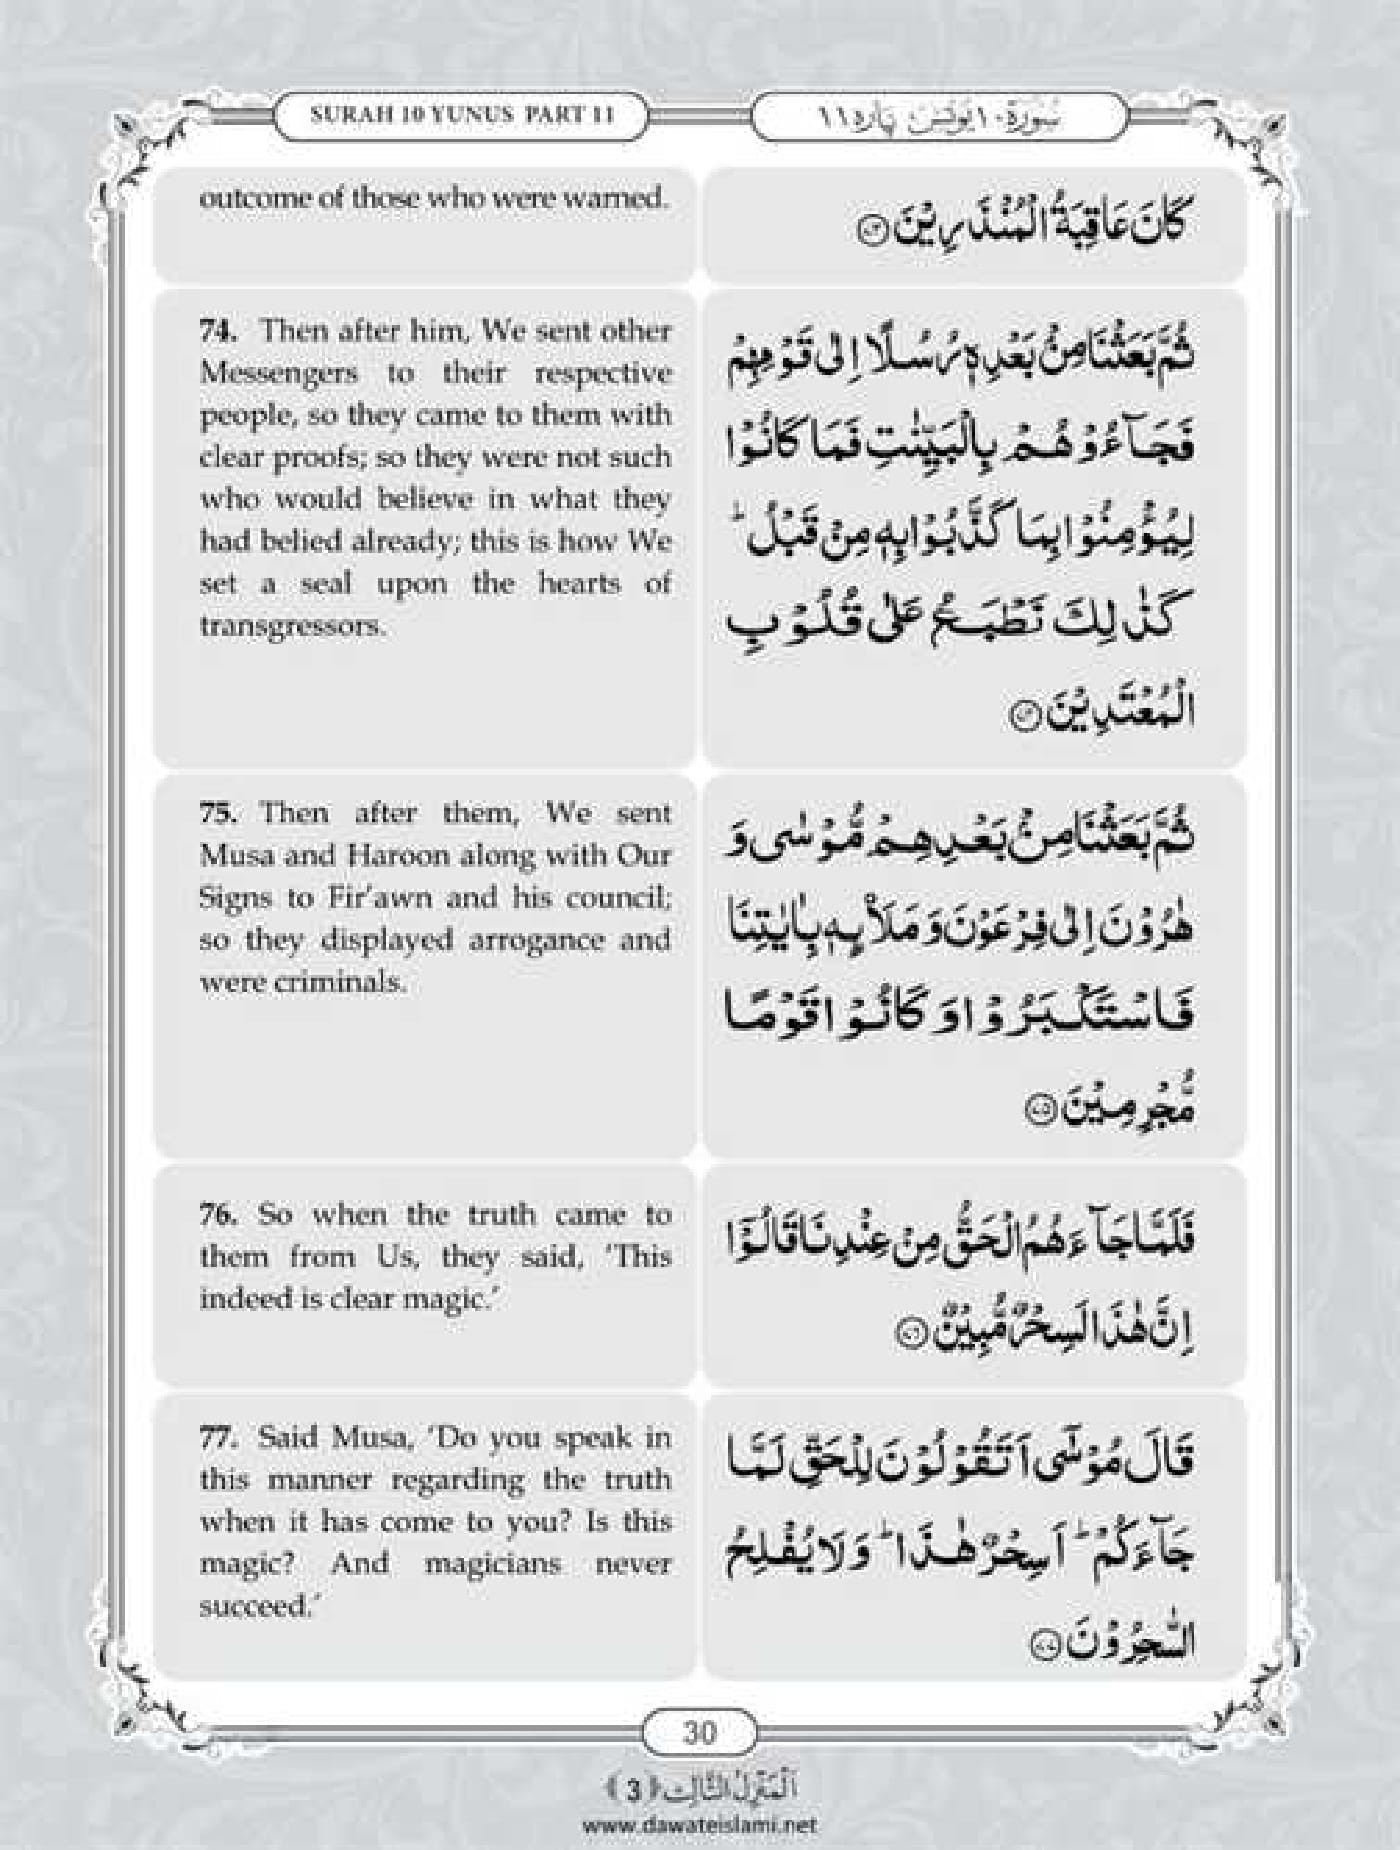 SURAH 10 YUNUS PART 11
سُوْرَة ١٠ يُوْنُس پاره ١١
outcome of those who were warned.
كَانَ عَاقِبَةُ الْمُنْذَرِيْنَ ﴿٧٣﴾
74. Then after him, We sent other
Messengers to their respective
people, so they came to them with
clear proofs; so they were not such
who would believe in what they
had belied already; this is how We
set a seal upon the hearts of
transgressors.
ثُمَّ بَعَثْنَا مِنْۢ بَعْدِهٖ رُسُلًا اِلٰى قَوْمِهِمْ
فَجَآءُوْهُمْ بِالْبَيِّنٰتِ فَمَا كَانُوْا
لِيُؤْمِنُوْا بِمَا كَذَّبُوْا بِهٖ مِنْ قَبْلُ ؕ
كَذٰلِكَ نَطْبَعُ عَلٰى قُلُوْبِ
الْمُعْتَدِيْنَ ﴿٧٤﴾
75. Then after them, We sent
Musa and Haroon along with Our
Signs to Fir’awn and his council;
so they displayed arrogance and
were criminals.
ثُمَّ بَعَثْنَا مِنْۢ بَعْدِهِمْ مُّوْسٰى وَ
هٰرُوْنَ اِلٰى فِرْعَوْنَ وَ مَلَا۟ئِهٖ بِاٰيٰتِنَا
فَاسْتَكْبَرُوْا وَ كَانُوْا قَوْمًا
مُّجْرِمِيْنَ ﴿٧٥﴾
76. So when the truth came to
them from Us, they said, ‘This
indeed is clear magic.’
فَلَمَّا جَآءَهُمُ الْحَقُّ مِنْ عِنْدِنَا قَالُوْۤا
اِنَّ هٰذَا لَسِحْرٌ مُّبِيْنٌ ﴿٧٦﴾
77. Said Musa, ‘Do you speak in
this manner regarding the truth
when it has come to you? Is this
magic? And magicians never
succeed.’
قَالَ مُوْسٰۤى اَتَقُوْلُوْنَ لِلْحَقِّ لَمَّا
جَآءَكُمْ ؕ اَسِحْرٌ هٰذَا ؕ وَ لَا يُفْلِحُ
السّٰحِرُوْنَ ﴿٧٧﴾
30
اَلْمَنْزِلُ الثَّالِث ﴿3﴾
www.dawateislami.net